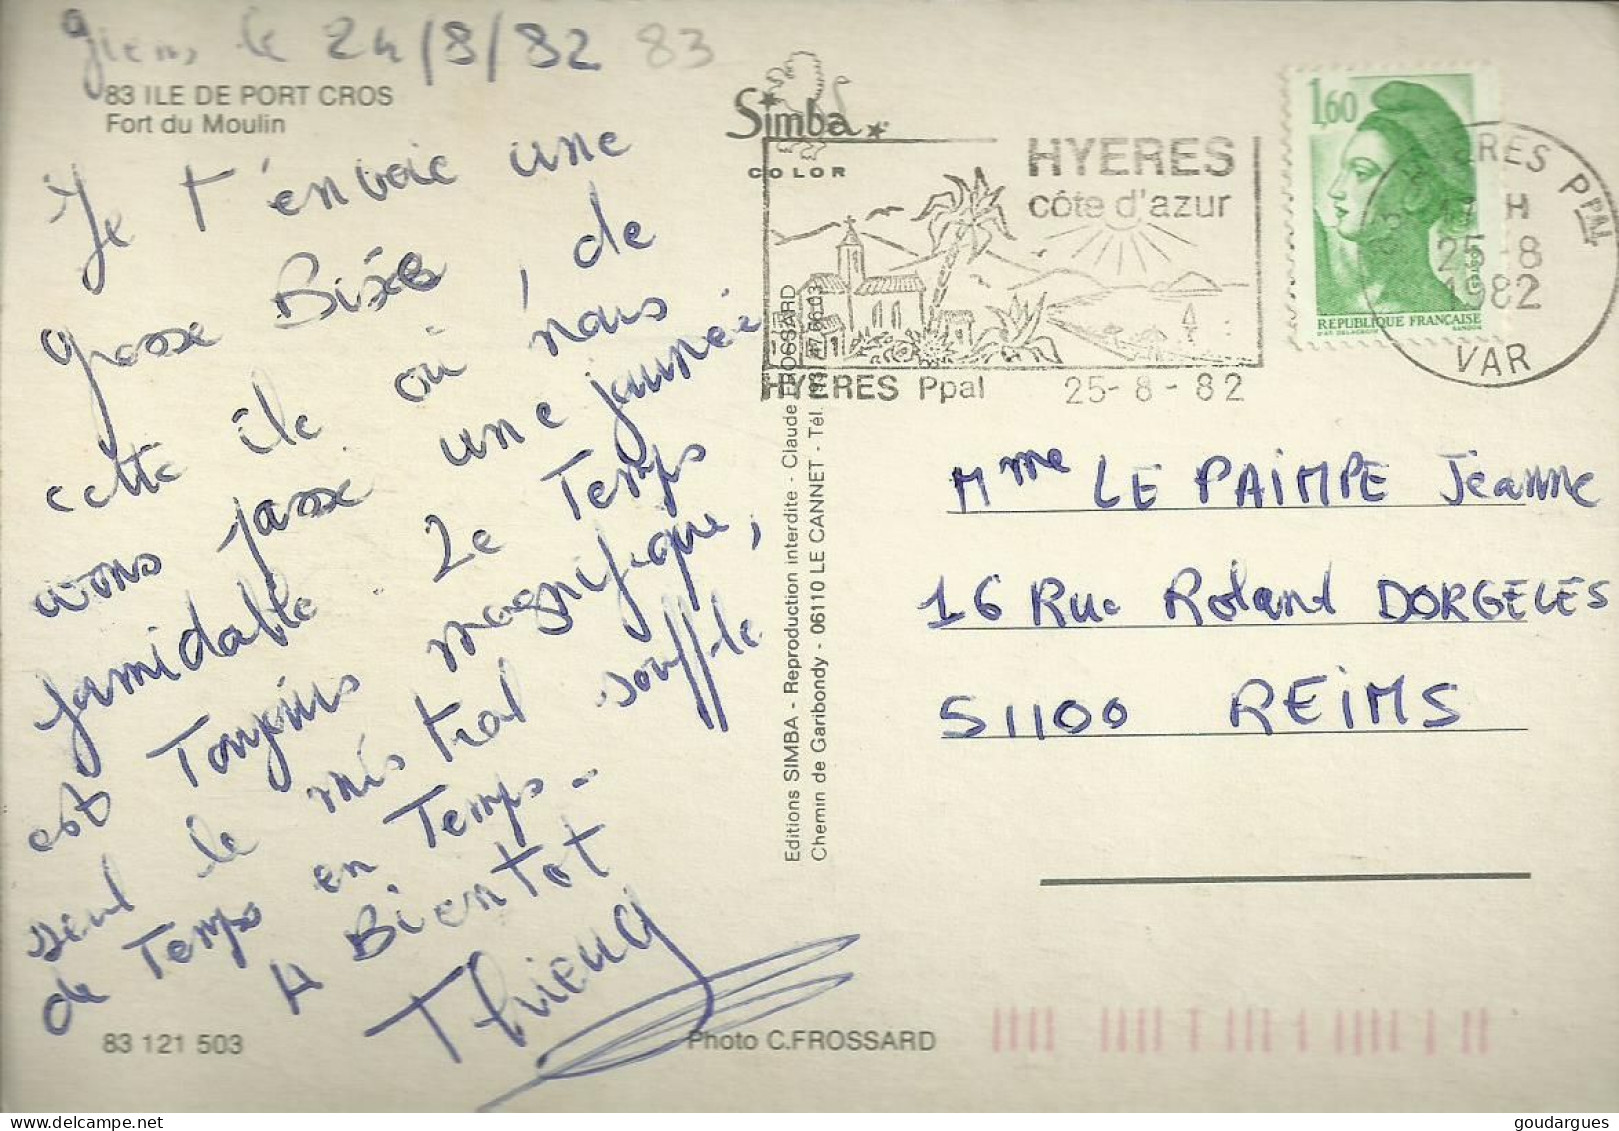 Giens le 24/8/82 83
83 ILE DE PORT CROS
Fort du Moulin
Je t'envoie une
grosse Bises de
cette île où nous
avons passé une journée
formidable. Le Temps
est Toujours magnifique,
seul le mistral souffle
de Temps en Temps-
A Bientot
Thierry
83 121 503
Photo C.FROSSARD
Simba
COLOR
Editions SIMBA - Reproduction interdite - Claude FROSSARD
Chemin de Garibondy - 06110 LE CANNET - Tél.
HYERES
côte d'azur
HYERES Ppal 25-8-82
1,60
REPUBLIQUE FRANÇAISE
HYERES PPAL
17 H
25-8
1982
VAR
Mme LE PAIMPE Jeanne
16 Rue Roland DORGELES
51100 REIMS
goudargues